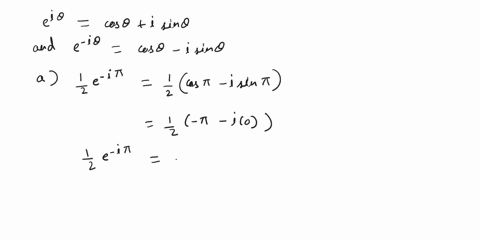 e^{iθ} = cosθ + i sinθ
and e^{-iθ} = cosθ - i sinθ
a) 1/2 e^{-iπ} = 1/2 (cos π - i sin π)
= 1/2 (-π - i(0))
1/2 e^{-iπ} =